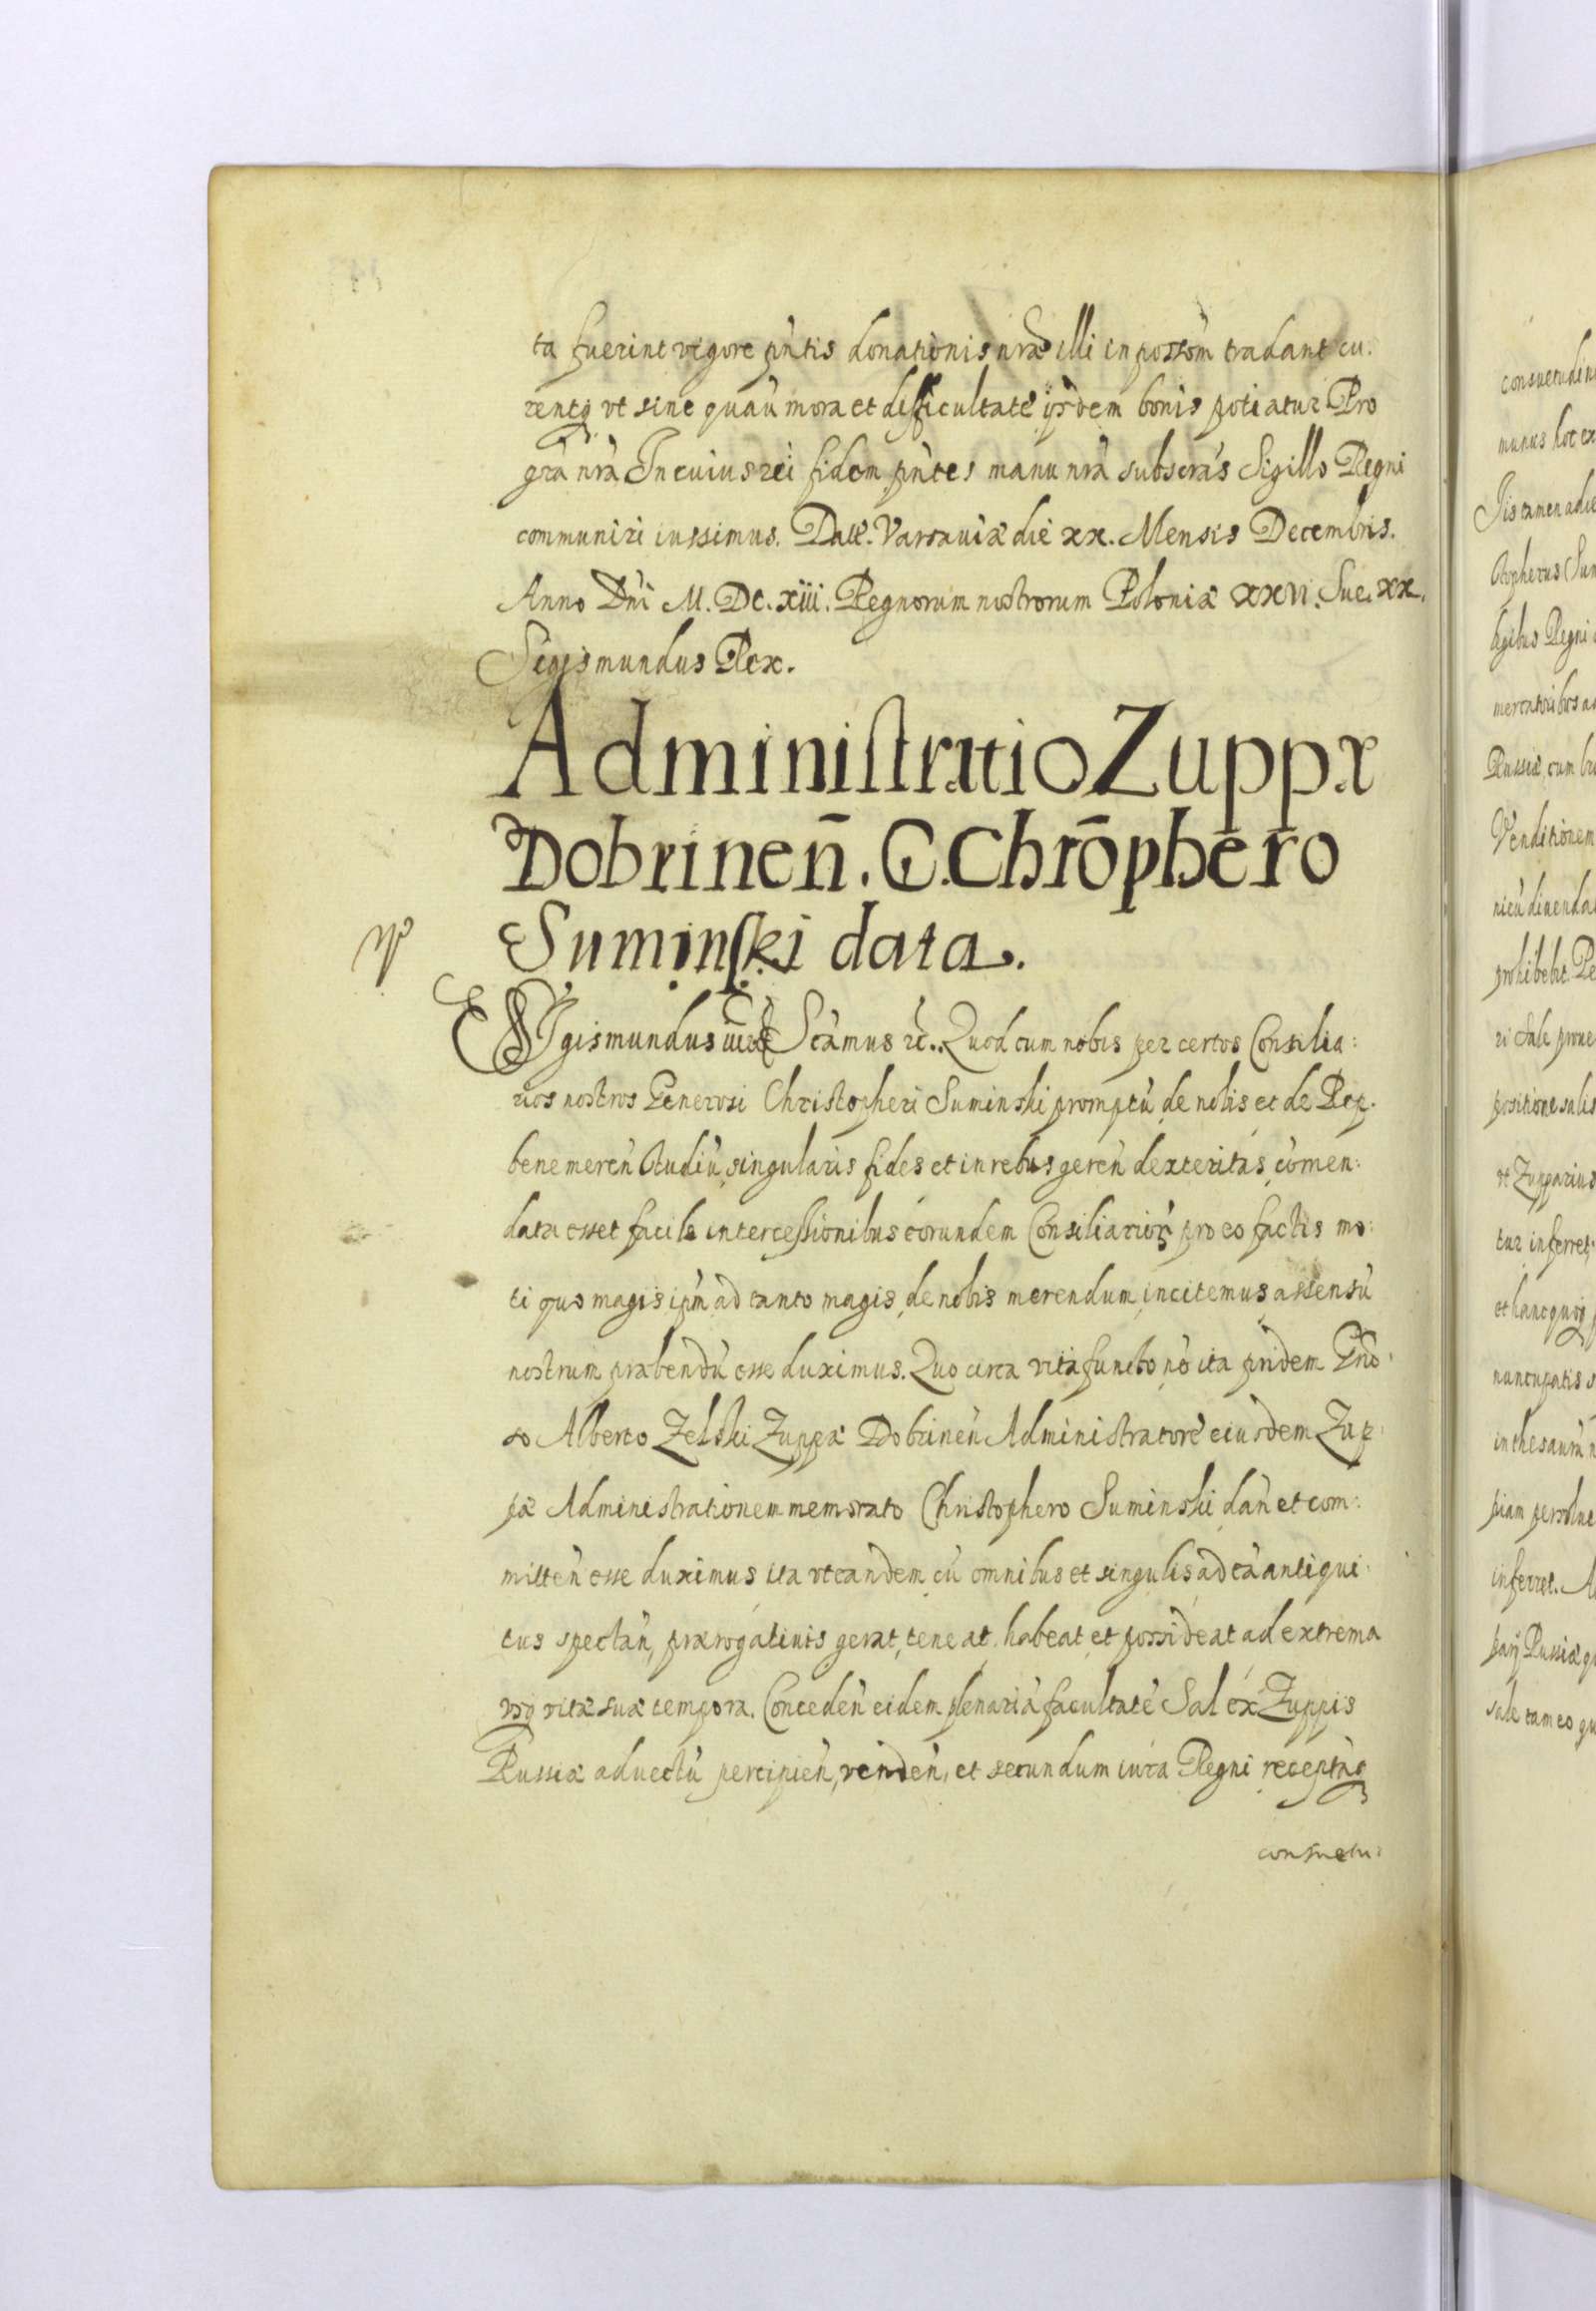 ta fuerint vigore pñtis donationis nræ illi in possõm tradant cu:
rentq̃ vt sine quaũ mora et difficultatẽ ijsdem bonis potiatur Pro
grã nrã In cuius rei fidem pñtes manu nrã subscrãs Sigillo Regni
communiri iussimus. Datt. Varsauiæ die xx. Mensis Decembris.
Anno Dñi M. DC. xiii. Regnorum nostrorum Poloniæ XXVI. Sue. XX.
Sigismundus Rex.
Administratio Zuppæ
Dobrineñ. G. Chrõphero
Suminski data.
SIgismundus iiius Scãmus &c. Quod cum nobis per certos Consilia:
rios nostros Generosi Christopheri Suminski promptũ de nobis et de Rep.
bene mereñ studiũ, singularis fides et in rebus gereñ dexteritas cõmen:
data esset facile intercessionibus eorundem Consiliarioꝝ pro eo factis mo:
ti quo magis ipm̃ ad tanto magis de nobis merendum incitemus assensũ
nostrum præbendũ esse duximus. Quo circa vita functo nõ ita pridem Gño:
so Alberto Zelski Zuppæ Dobrineñ Administratorẽ eiusdem Zup:
pæ Administrationem memorato Christophero Suminski dañ et com:
mitteñ esse duximus ita vt eandem cũ omnibus et singulis ad eã antiqui:
tus spectañ, prærogatiuis gerat, teneat, habeat et possideat ad extrema
vsq̃ vitæ suæ tempora. Concedeñ eidem plenariã facultatẽ Sal ex Zuppis
Russiæ aduectũ percipieñ, vendeñ, et secundum iura Regni receptãq̃
consuetu:
consuetudin
munus hoc ex
stophorus Sum
legibus Regni
mercatoribus a
Russiæ, cum
Venditionem
prohibebit.
ri Sale proue
positione salis
vt Zupparius
tur inferret,
et hancquoq̃
nuncupatis
in thesaurũ n
piam persolue
inferret.
parij Russiæ
sale tam eo